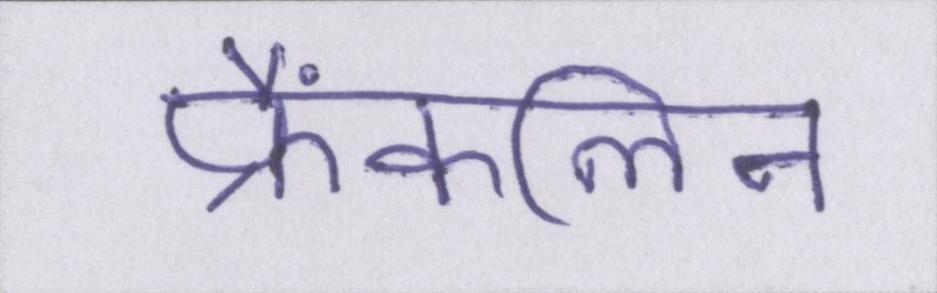 फ्रैंकलिन